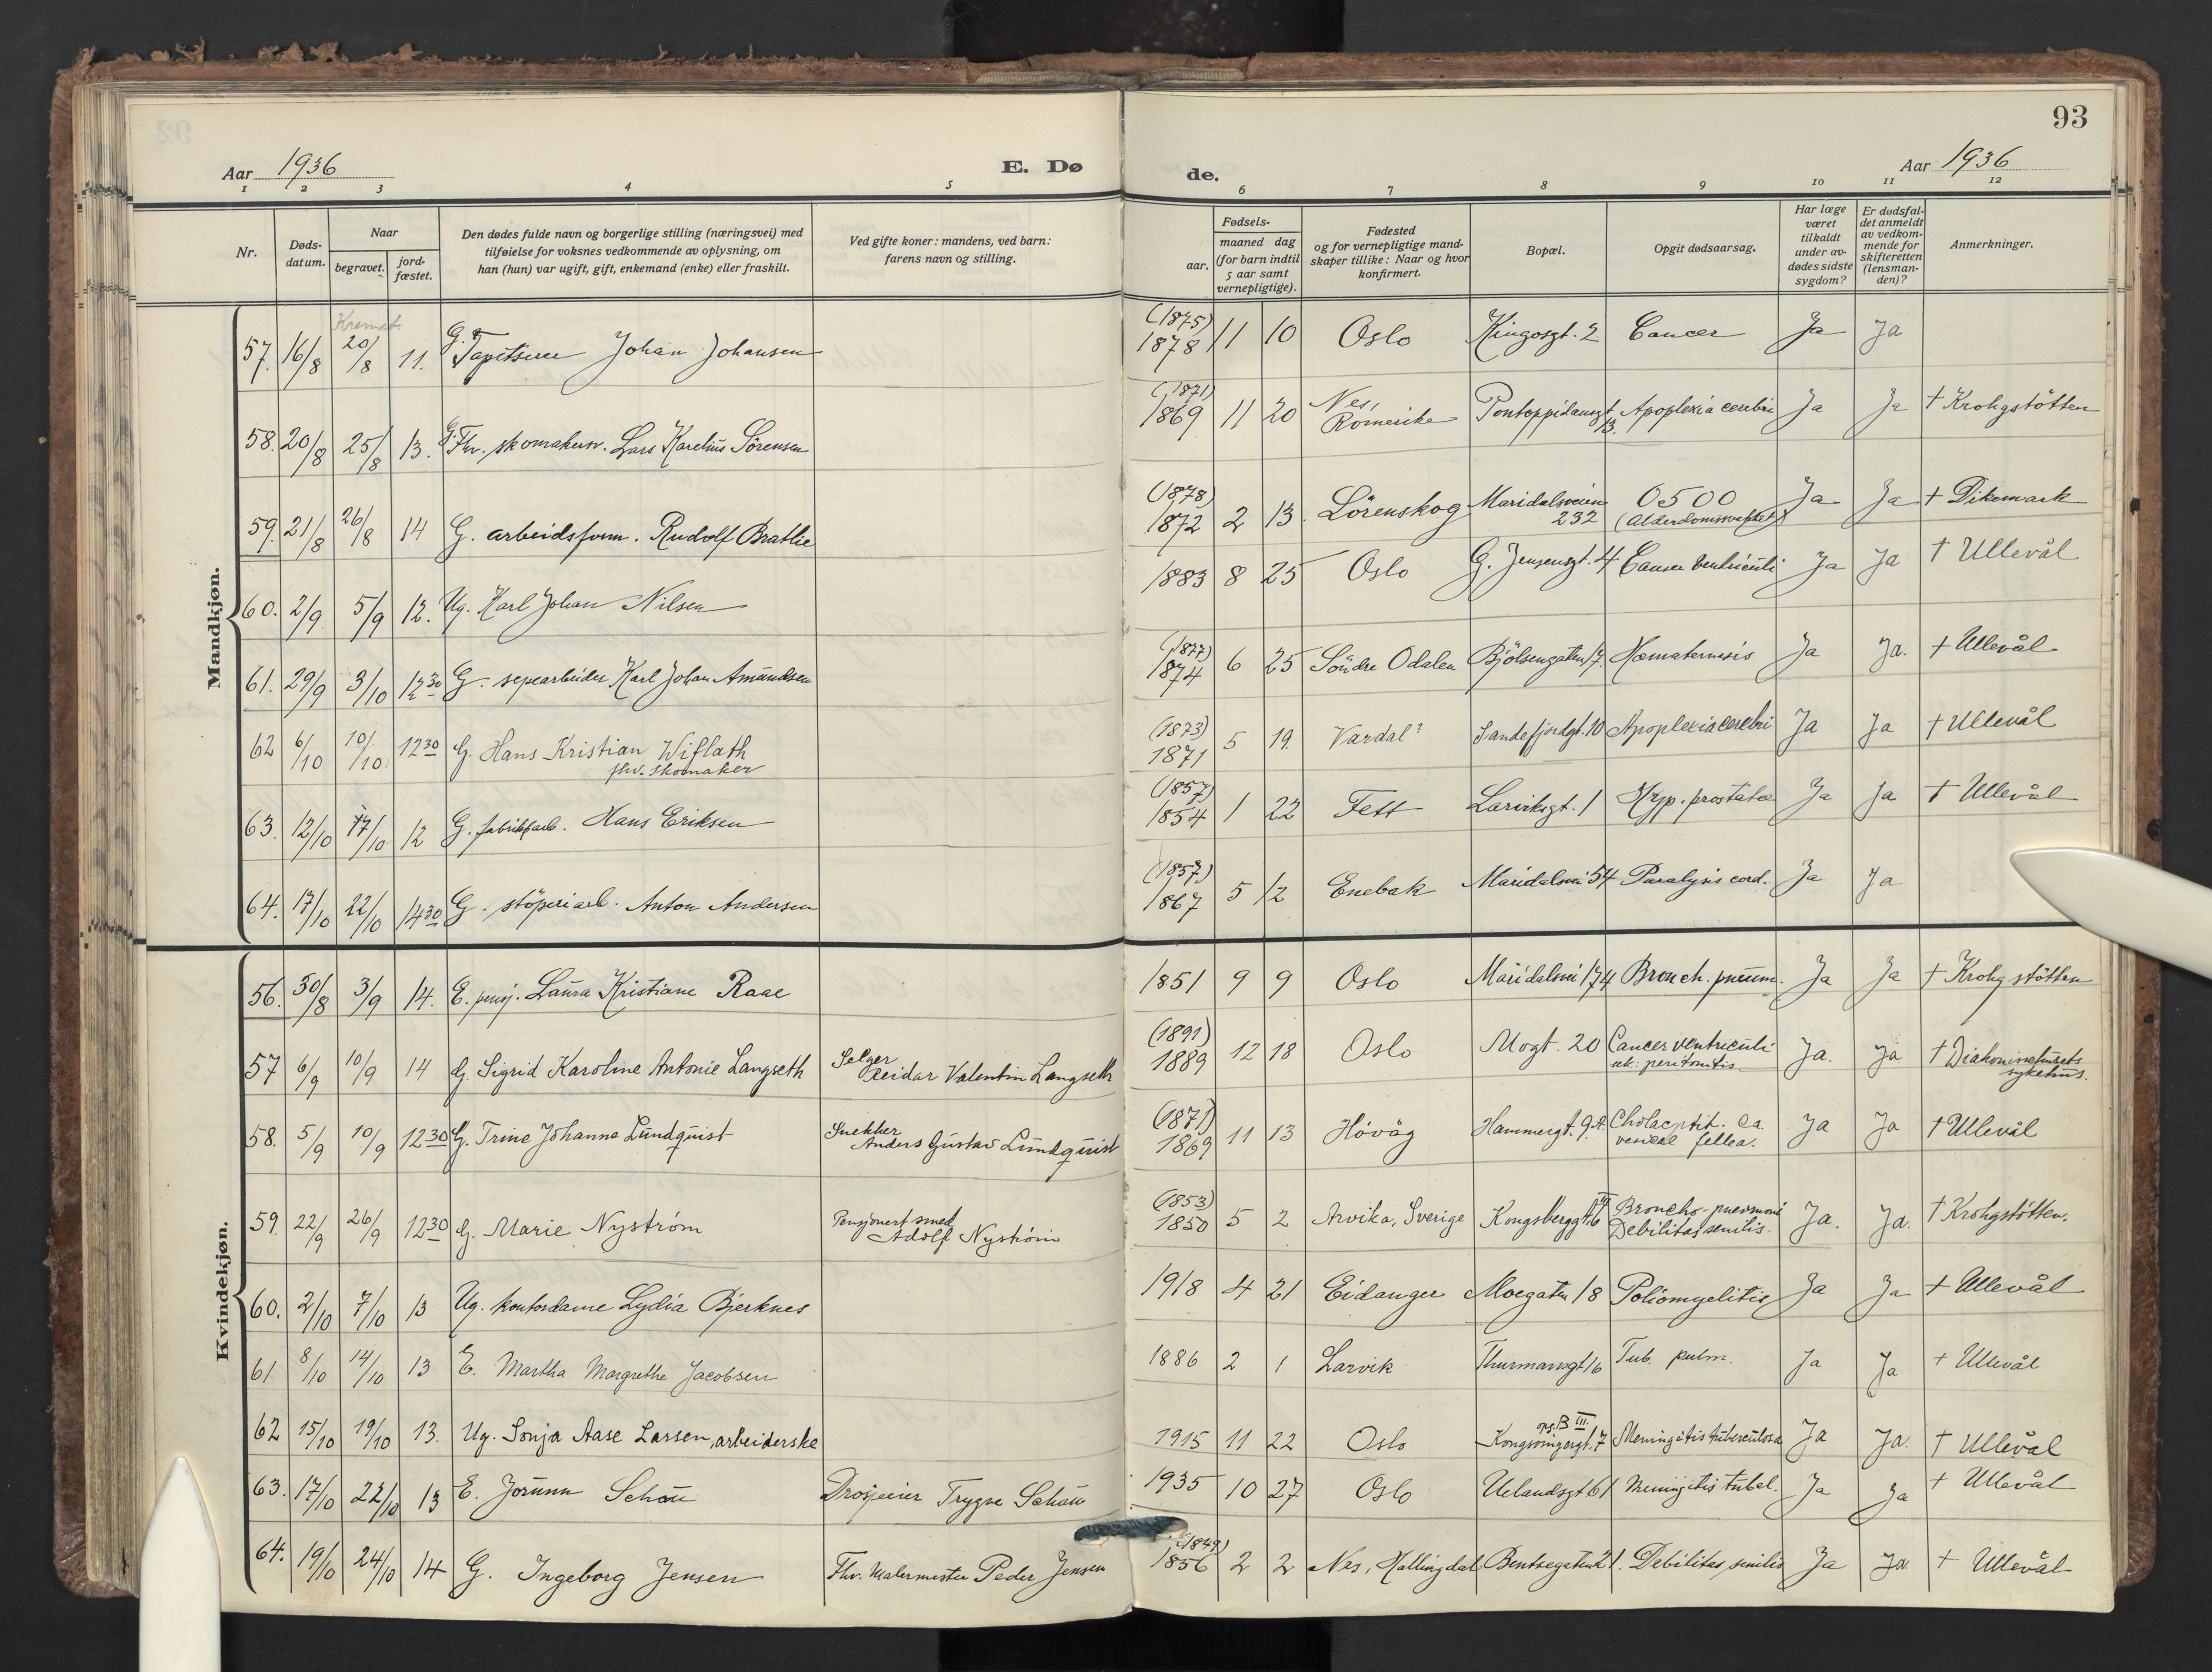 93
Aar 1936
E. Dø
de.
Aar 1936
1 2 3 4 5 6 7 8 9 10 11 12
Nr.
Døds-
datum.
Naar
begravet.
jord-
fæstet.
Den dødes fulde navn og borgerlige stilling (næringsvei) med
tilføielse for voksnes vedkommende av oplysning, om
han (hun) var ugift, gift, enkemand (enke) eller fraskilt.
Ved gifte koner: mandens, ved barn:
farens navn og stilling.
Fødsels-
aar.
maaned dag
(for barn indtil
5 aar samt
vernepligtige).
Fødested
og for vernepligtige mand-
skaper tillike: Naar og hvor
konfirmert.
Bopæl.
Opgit dødsaarsag.
Har læge
været
tilkaldt
under av-
dødes sidste
sygdom?
Er dødsfal-
det anmeldt
av vedkom-
mende for
skifteretten
(lensman-
den)?
Anmerkninger.
Mandkjøn.
Kremet.
(1875)
57. 16/8 20/8 11. G. Tapetserer Johan Johansen 1878 11 10 Oslo Kingosgt. 2 Cancer Ja Ja
(1871)
58. 20/8 25/8 13. G. Fhv. skomakersv. Lars Karelius Sörensen 1869 11 20 Nes, Romerike Pontoppidansgt. 13. Apoplexia cerebri Ja Ja † Krohgstötten
(1878)
59. 21/8 26/8 14 G. arbeidsform. Rudolf Bratlie 1872 2 13. Lörenskog Maridalsveien 232 0500 (Alderdomssvekket) Ja Ja † Dikemark
60. 2/9 5/9 12. Ug. Karl Johan Nilsen 1883 8 25 Oslo G. Jensensgt. 4 Cancer Ventriculi Ja Ja † Ullevål
(1877)
61. 29/9 3/10 12 30 G. sepearbeider Karl Johan Amundsen 1874 6 25 Söndre Odalen Bjölsengaten 17. Hæmatemesis Ja Ja. † Ullevål
(1873)
62 6/10 10/10 12 30 G. Hans Kristian Wiflath 1871 5 19. Vardal? Sandefjordgt. 10 Apoplexia cerebri Ja Ja † Ullevål
fhv. skomaker
(1857)
63. 12/10 17/10 12 G. fabrikkarb. Hans Eriksen 1854 1 22 Fett Larviksgt. 1 Hyp. prostatae Ja Ja † Ullevål
(1857)
64. 17/10 22/10 14 30 G. stöperiarb. Anton Andersen 1867 5 12 Enebak Maridalsvei 54 Paralysis cord. Ja Ja
Kvindekjøn.
56. 30/8 3/9 14. E. pensj. Laura Kristiane Raae 1851 9 9 Oslo Maridalsvei 174 Bronch. pneum. Ja Ja † Krohgstötten
(1891)
57 6/9 10/9 14 G. Sigrid Karoline Antonie Langseth Selger Reidar Valentin Langseth 1889 12 18 Oslo Mogt. 20 Cancer ventriculi Ja. Ja † Diakonissehusets
peritonitis sykehus.
(1871)
58. 5/9 10/9 12 30 G. Trine Johanne Lundquist Snekker Anders Gustav Lundquist 1869 11 13 Hövåg Hammergt. 9 A. Ca. Ja Ja † Ullevål
vesicae fellea.
(1853)
59. 22/9 26/9 12 30 G. Marie Nyström Pensjonert smed Adolf Nyström 1850 5 2 Arvika, Sverige Kongsberggt. 16 III Broncho-pneumoni Ja. Ja. † Krohgstötten.
Debilitas senilis.
60. 2/10 7/10 13 Ug. kontordame Lydia Bjerknes 1918 4 21 Eidanger Moegaten 18 Poliomyelitis Ja Ja † Ullevål
61 8/10 14/10 13 E. Martha Margrethe Jacobsen 1886 2 1 Larvik Thurmansgt 16 Tub. pulm. Ja Ja † Ullevål
opg. B III.
62 15/10 19/10 13. Ug. Sonja Aase Larsen, arbeiderske 1915 11 22 Oslo Kongsvingergt. 7 Meningitis tuberculosa Ja Ja. † Ullevål
63. 17/10 22/10 13 E. Jorunn Schau Drosjeeier Trygve Schau 1935 10 27 Oslo Uelandsgt 61 Meningitis tubel. Ja Ja † Ullevål
(1849)
64. 19/10 24/10 14 G. Ingeborg Jensen Fhv. Malermester Peder Jensen 1856 2 2 Nes, Hallingdal Bentsegaten 21. Debilitas senilis Ja Ja. † Ullevål